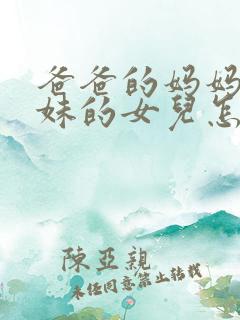 爸爸的妈妈
妹的女兒怎
陳亞親
未经同意禁止转载